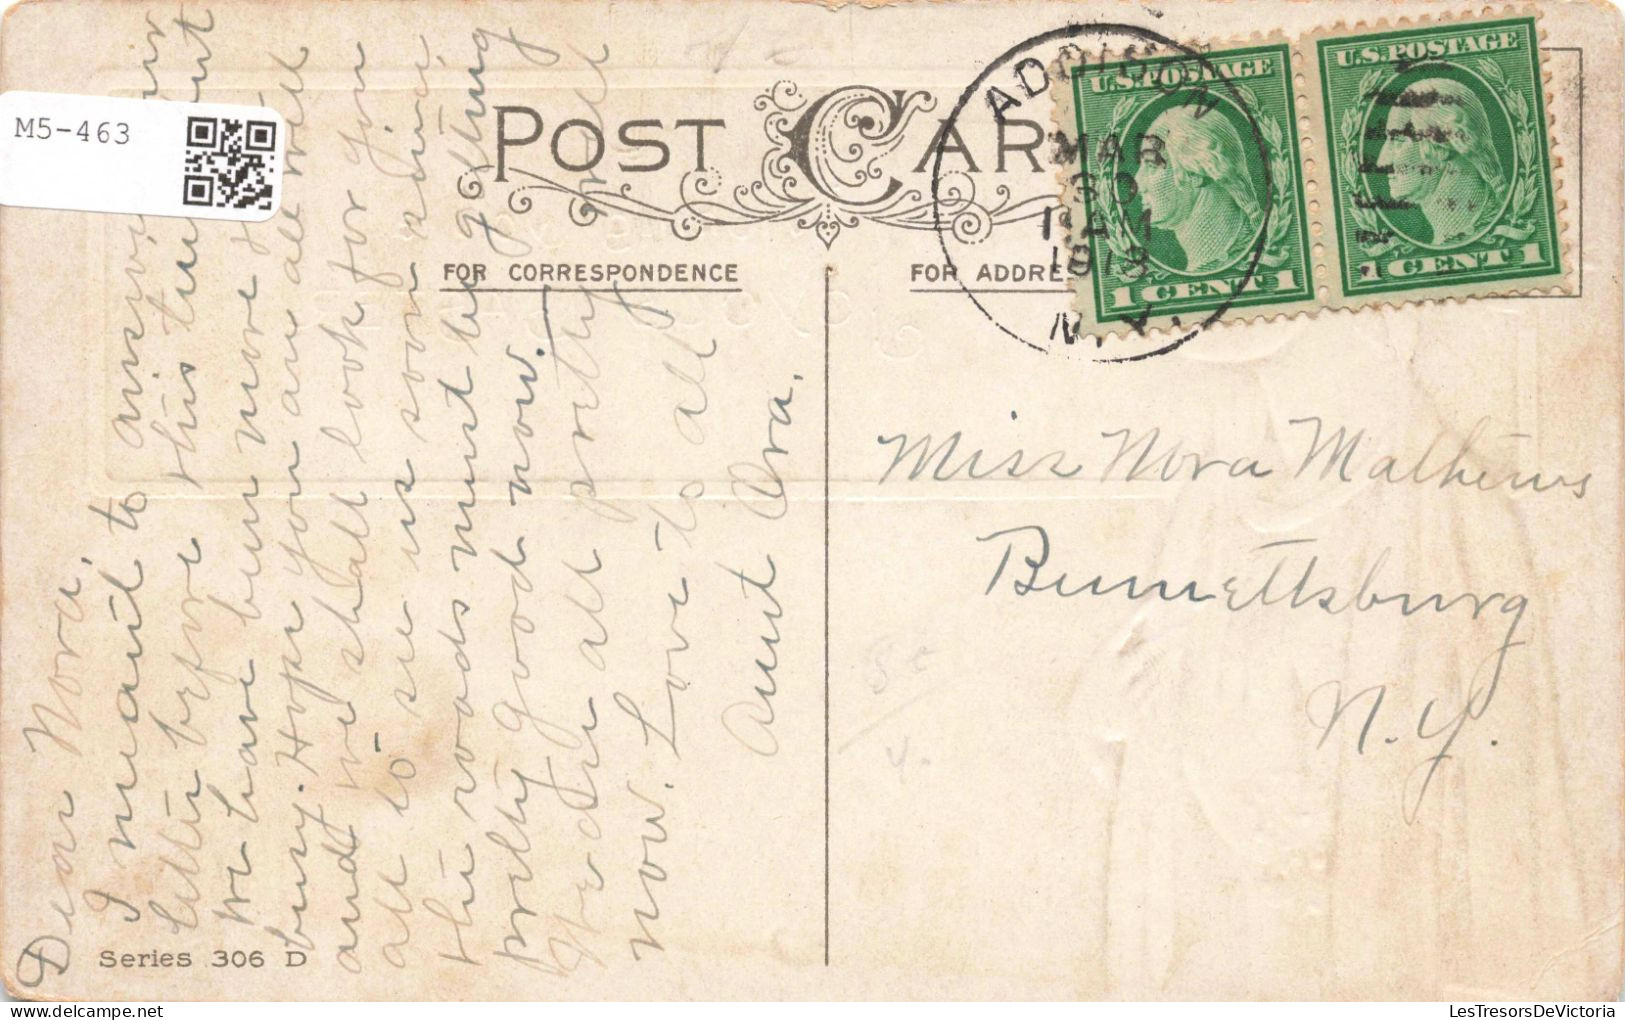 M5-463
POST CAR
FOR CORRESPONDENCE
FOR ADDRE
ADDISON
MAR
30
11 AM
1918
N.Y.
U.S. POSTAGE
1 CENT 1
U.S. POSTAGE
1 CENT 1
Dear Nora,
I meant to answer
letter before this but
we have been more
busy. Hope you are all well
and we shall look for you
all to see us soon
the roads must be getting
pretty good now.
We are all pretty well
now. Love to all
Aunt Ora.
Miss Nora Mathews
Bennettsburg
N.Y.
Series 306 D
LesTresorsDeVictoria